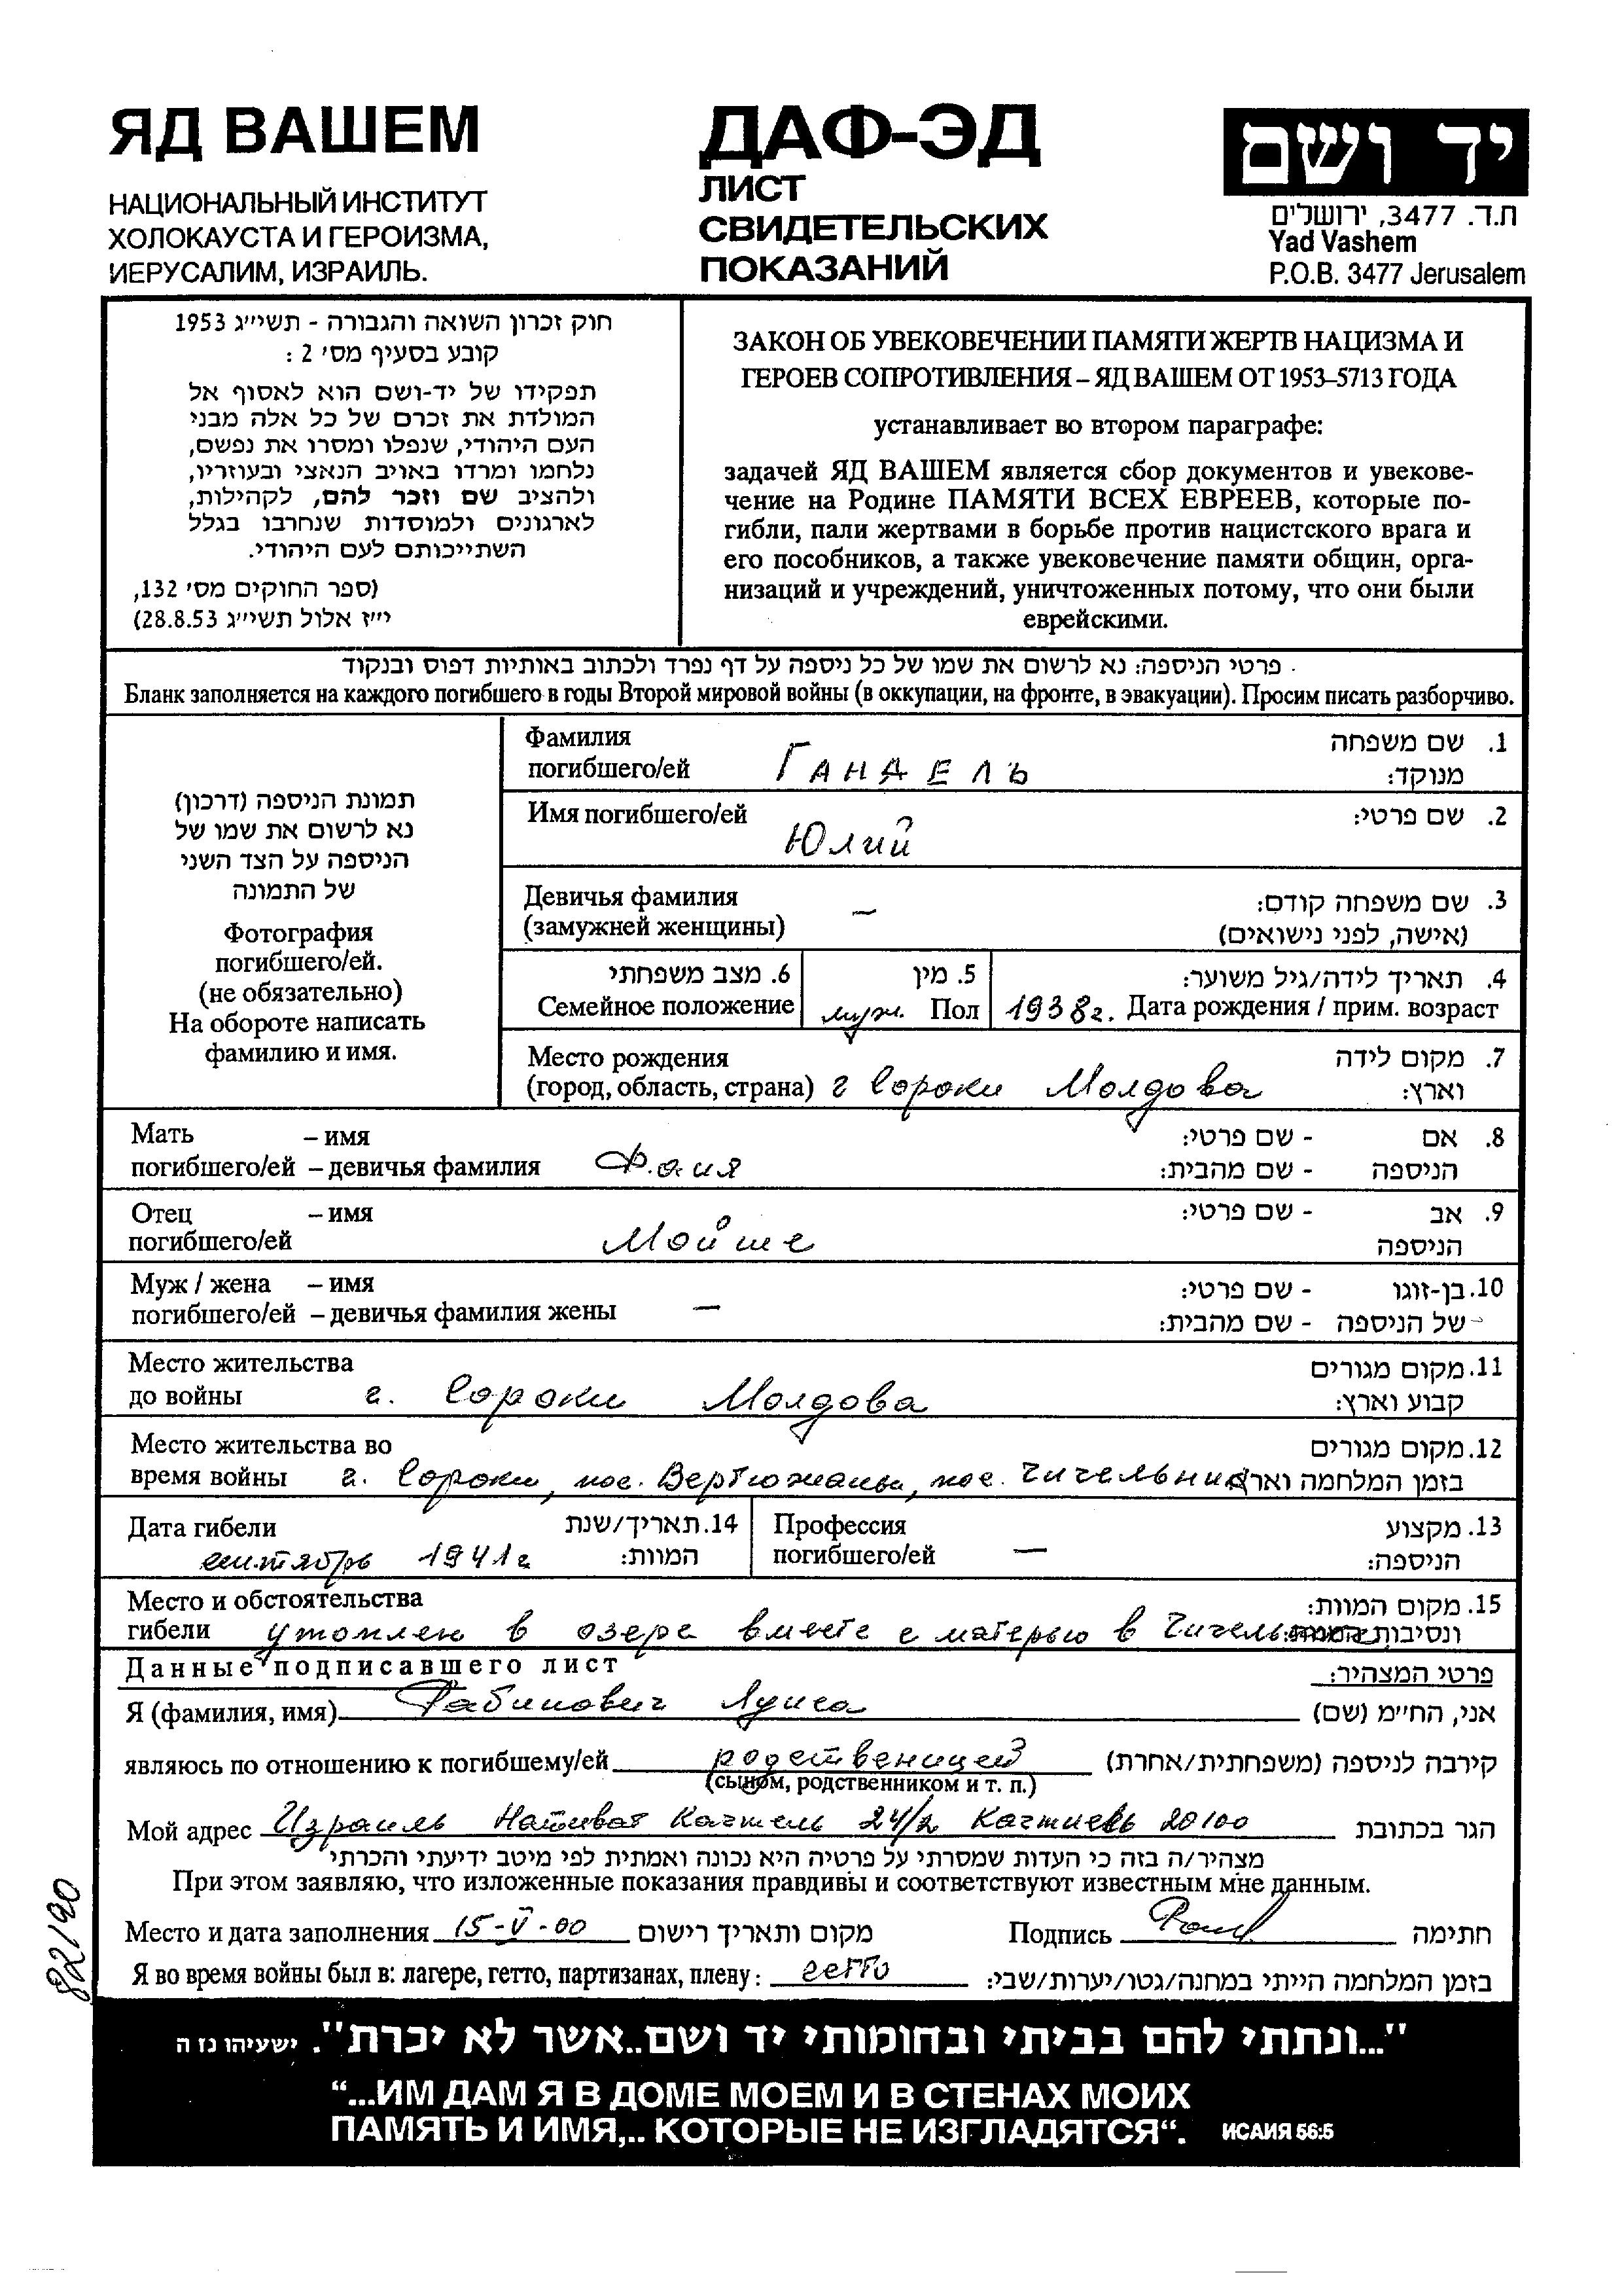 ЯД ВАШЕМ
НАЦИОНАЛЬНЫЙ ИНСТИТУТ
ХОЛОКАУСТА И ГЕРОИЗМА,
ИЕРУСАЛИМ, ИЗРАИЛЬ.
ДАФ-ЭД
ЛИСТ
СВИДЕТЕЛЬСКИХ
ПОКАЗАНИЙ
יד ושם
ת.ד. 3477, ירושלים
Yad Vashem
P.O.B. 3477 Jerusalem
חוק זכרון השואה והגבורה - תשי״ג 1953
קובע בסעיף מס׳ 2 :
תפקידו של יד-ושם הוא לאסוף אל
המולדת את זכרם של כל אלה מבני
העם היהודי, שנפלו ומסרו את נפשם,
נלחמו ומרדו באויב הנאצי ובעוזריו,
ולהציב שם וזכר להם, לקהילות,
לארגונים ולמוסדות שנחרבו בגלל
השתייכותם לעם היהודי.
(ספר החוקים מס׳ 132,
י״ז אלול תשי״ג 28.8.53)
ЗАКОН ОБ УВЕКОВЕЧЕНИИ ПАМЯТИ ЖЕРТВ НАЦИЗМА И
ГЕРОЕВ СОПРОТИВЛЕНИЯ – ЯД ВАШЕМ ОТ 1953–5713 ГОДА
устанавливает во втором параграфе:
задачей ЯД ВАШЕМ является сбор документов и увекове-
чение на Родине ПАМЯТИ ВСЕХ ЕВРЕЕВ, которые по-
гибли, пали жертвами в борьбе против нацистского врага и
его пособников, а также увековечение памяти общин, орга-
низаций и учреждений, уничтоженных потому, что они были
еврейскими.
פרטי הניספה: נא לרשום את שמו של כל ניספה על דף נפרד ולכתוב באותיות דפוס ובנקוד
Бланк заполняется на каждого погибшего в годы Второй мировой войны (в оккупации, на фронте, в эвакуации). Просим писать разборчиво.
תמונת הניספה (דרכון)
נא לרשום את שמו של
הניספה על הצד השני
של התמונה
Фотография
погибшего/ей.
(не обязательно)
На обороте написать
фамилию и имя.
Фамилия 1. שם משפחה
погибшего/ей ГАНДЕЛЬ מנוקד:
Имя погибшего/ей 2. שם פרטי:
Юлий
Девичья фамилия 3. שם משפחה קודם:
(замужней женщины) – (אישה, לפני נישואים)
6. מצב משפחתי 5. מין 4. תאריך לידה/גיל משוער:
Семейное положение муж. Пол 1938г. Дата рождения / прим. возраст
Место рождения 7. מקום לידה
(город, область, страна) г Сороки Молдова וארץ:
Мать – имя 8. אם - שם פרטי:
погибшего/ей – девичья фамилия Фаия הניספה - שם מהבית:
Отец – имя 9. אב - שם פרטי:
погибшего/ей Мойше הניספה
Муж / жена – имя 10. בן-זוגו - שם פרטי:
погибшего/ей – девичья фамилия жены – של הניספה - שם מהבית:
Место жительства 11. מקום מגורים
до войны г. Сороки Молдова קבוע וארץ:
Место жительства во 12. מקום מגורים
время войны г. Сороки, пос. Вертюжаны, пос. Чичельник בזמן המלחמה וארץ
Дата гибели 14. תאריך/שנת Профессия 13. מקצוע
сентябрь 1941г המוות: погибшего/ей – הניספה:
Место и обстоятельства 15. מקום המוות:
гибели утоплен в озере вместе с матерью в ונסיבות
Данные подписавшего лист פרטי המצהיר:
Я (фамилия, имя) Рабинович Луиса אני, החי״מ (שם)
являюсь по отношению к погибшему/ей родственицей קירבה לניספה (משפחתית/אחרת)
(сыном, родственником и т. п.)
Мой адрес Израиль Нативат Кацнель 24/2 20100 הגר בכתובת
מצהיר/ה בזה כי העדות שמסרתי על פרטיה היא נכונה ואמתית לפי מיטב ידיעתי והכרתי
При этом заявляю, что изложенные показания правдивы и соответствуют известным мне данным.
Место и дата заполнения 15-V-00 מקום ותאריך רישום Подпись חתימה
Я во время войны был в: лагере, гетто, партизанах, плену: гетто בזמן המלחמה הייתי במחנה/גטו/יערות/שבי:
82/90
"...ונתתי להם בביתי ובחומותי יד ושם..אשר לא יכרת". ישעיהו נז ה
“...ИМ ДАМ Я В ДОМЕ МОЕМ И В СТЕНАХ МОИХ
ПАМЯТЬ И ИМЯ,.. КОТОРЫЕ НЕ ИЗГЛАДЯТСЯ“. ИСАИЯ 56:5